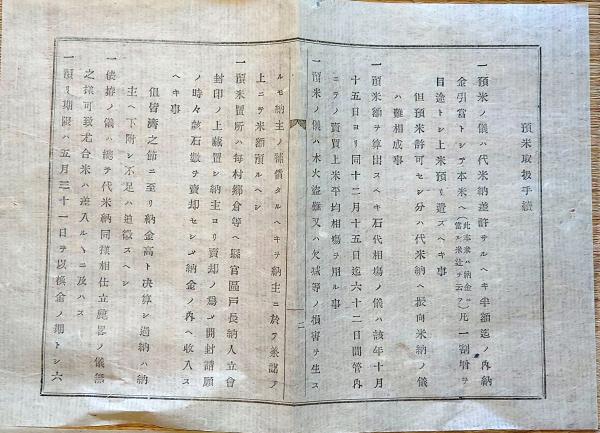 預米取扱手續
一預米ノ儀ハ代米納差許サルヘキ半額迄ノ内納
金引當トシテ本米ヘ(此本米ハ納金ニ當ル米辻ヲ云フ)凡一割増ヲ
目途トシ上米預リ遣スヘキ事
但預米許可セシ分ハ代米納ヘ振向米納ノ儀
ハ難相成事
一預米額ヲ算出スヘキ石代相場ノ儀ハ該年十月
十五日ヨリ同十二月十五日迄六十二日間管内
ニテノ賣買上米平均相場ヲ用ル事
一預米ノ儀ハ水火盗難又ハ欠減等ノ損害ヲ生ス
ルモ納主ノ補償タルヘキヲ納主ニ於テ兼諾ノ
上ニテ米額預ルヘシ
一預米置所ハ毎村郷倉等ヘ縣官區戸長納人立會
封印ノ上蔵置シ納主ヨリ賣却ノ為メ開封請願
ノ時々該石數ヲ賣却セシメ納金ノ内ヘ收入ス
ヘキ事
但皆濟之節ニ至リ納金高ト決算シ過納ハ納
主ヘ下附シ不足ハ追徴スヘシ
一俵拵ノ儀ハ總テ代米納同様相仕立麁畧ノ儀無
之様可致尤合米ハ差入ルヽニ及ハス
一預リ期限ハ五月三十一日ヲ以換金ノ期トシ六
二